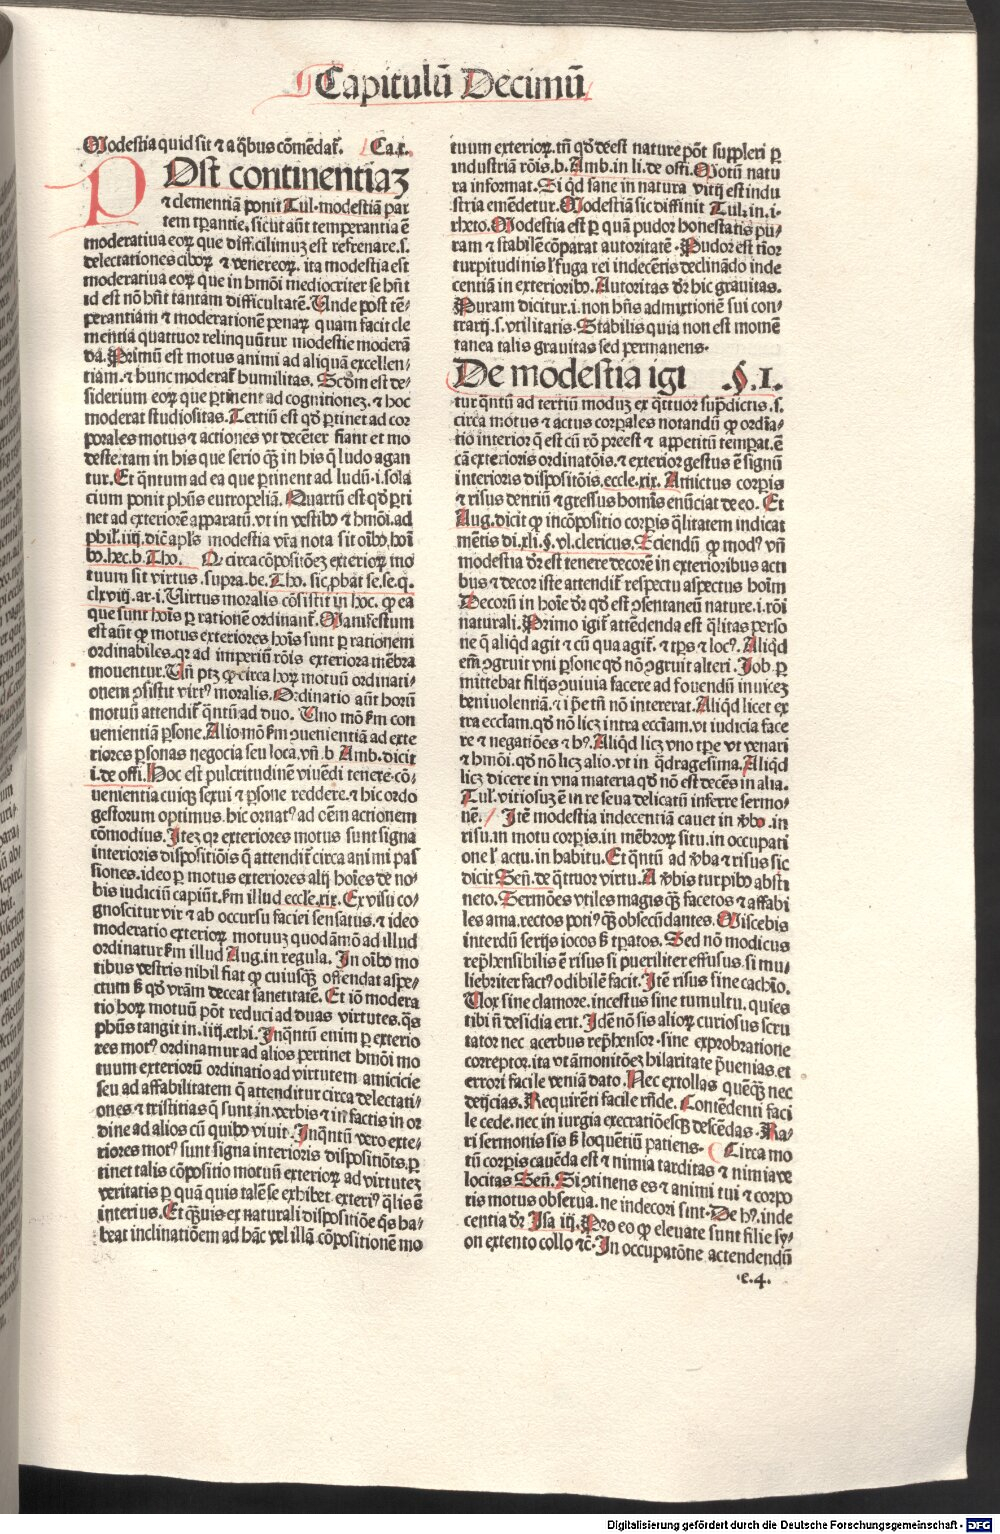 Capitulū Decimū
Modestia quid sit ⁊ a q̄bus cōmēdat̄. Ca.x.
POst continentiaʒ
⁊ clementiā ponit Tul. modestiā par
tem tꝑantie, sicut aūt temperantia ē
moderatiua eoꝝ que difficilimuʒ est refrenare .s.
delectationes ciboꝝ ⁊ venereoꝝ. ita modestia est
moderatiua eoꝝ que in hmōi mediocriter se hn̄t
id est nō hn̄t tantam difficultatē. Unde post tē-
perantiam ⁊ moderationē penaꝝ quam facit cle
mentia quattuor relinquūtur modestie moderā
da. Primū est motus animi ad aliquā excellen-
tiam. ⁊ hunc moderat̄ humilitas. Scd̄m est de-
siderium eoꝝ que ꝑtinent ad cognitioneʒ. ⁊ hoc
moderat studiositas. Tertiū est qd̄ ꝑtinet ad cor
porales motus ⁊ actiones vt decēter fiant et mo
deste. tam in his que serio qʒ̄ in his q̄ ludo agan
tur. Et q̄ntum ad ea que ꝑtinent ad ludū .i. sola
cium ponit ph̄us eutropeliā. Quartū est qd̄ ꝑti
net ad exteriorē apparatū. vt in vestibo ⁊ hmōi. ad
phil̓. iiij. dic̄ apl̓s modestia vr̄a nota sit oībo hoī
bo. hec .b. Tho. Q circa cōpositōeʒ exterioꝝ mo
tuum sit virtus .supra. be. Tho. sic ꝓbat se. se. q.
clxviij. ar. i. Uirtus moralis cōsistit in hoc. ꝙ ea
que sunt hoīs ꝑ rationē ordinant̄. Manifestum
est aūt ꝙ motus exteriores hoīs sunt ꝑ rationem
ordinabiles. qꝛ ad imperiū rōis exteriora mēbra
mouentur. Un̄ ptʒ ꝙ circa hoꝝ motuū ordinati-
onem ꝯsistit virt⁹ moralis. Ordinatio aūt horū
motuū attendit̄ q̄ntū ad duo. Uno mō ẜm con
uenientiā ꝑsone. Alio mō ẜm ꝯuenientiā ad exte
riores ꝑsonas negocia seu loca. vn̄ .b Amb. dicit
i. de offi. Hoc est pulcritudinē viuēdi tenere cō-
uenientia cuiqʒ sexui ⁊ ꝑsone reddere. ⁊ hic ordo
gestorum optimus. hic ornat⁹ ad oēm actionem
cōmodius. Iteʒ qꝛ exteriores motus sunt signa
interioris dispositiōis q̄ attendit̄ circa animi pas
siones. ideo ꝑ motus exteriores alij hoīes de no-
bis iudiciū capiūt. ẜm illud eccle. xix. Ex visu co-
gnoscitur vir ⁊ ab occursu faciei sensatus. ⁊ ideo
moderatio exterioꝝ motuuʒ quodāmō ad illud
ordinatur ẜm illud Aug. in regula. In oībo mo
tibus vestris nihil fiat ꝙ cuiusqʒ̄ offendat aspe-
ctum ẞ qd̄ vr̄am deceat sanctitatē. Et iō modera
tio hoꝝ motuū pōt reduci ad duas virtutes. q̄s
ph̄us tangit in. iiij. ethi. Inq̄ntū enim ꝑ exterio
res mot⁹ ordinamur ad alios pertinet hmōi mo
tuum exteriorū ordinatio ad virtutem amicicie
seu ad affabilitatem q̄ attenditur circa delectati-
ones ⁊ tristitias q̄ sunt in verbis ⁊ in factis in or
dine ad alios cū quibo viuit. Inq̄ntū vero exte-
riores mot⁹ sunt signa interioris dispositiōis. ꝑ
tinet talis cōpositio motuū exterioꝝ ad virtuteʒ
veritatis ꝑ quā quis talē se exhibet exteri⁹ q̄lis ē
interius. Et q̄uis ex naturali dispositiōe q̄s ha-
beat inclinatiōem ad hāc vel illā cōpositionē mo
tuum exterioꝝ. tn̄ qd̄ deest nature pōt suppleri ꝑ
industriā rōis. b. Amb. in li. de offi. Motū natu
ra informat. Si qd̄ sane in natura vitij est indu
stria emēdetur. Modestiā sic diffinit Tul. in. i.
rheto. Modestia est ꝑ quā pudor honestatis pu-
ram ⁊ stabilē cōparat autoritatē. Pudor est tīor
turpitudinis l̓ fuga rei indecētis declinādo inde
centiā in exteriorībo. Autoritas dr̄ hic grauitas.
Puram dicitur .i. non hn̄s admixtionē sui con-
trarij .s. vtilitatis. Stabilis quia non est momē
tanea talis grauitas sed permanens.
De modestia igi .§.I.
tur q̄ntū ad tertiū moduʒ ex q̄ttuor supͣdictis .s.
circa motus ⁊ actus corꝑales notandū ꝙ ordīa-
tio interior q̄ est cū rō preest ⁊ appetitū temperat. ē
cā exterioris ordinatōis. ⁊ exterior gestus ē signū
interioris dispositōis. eccle. xix. Amictus corꝑis
⁊ risus dentiū ⁊ gressus homīs enūciat de eo. Et
Aug. dicit ꝙ incōpositio corꝑis q̄litatem indicat
mētis di. xli. §. vl. clericus. Sciendū ꝙ mod⁹ vn̄
modestia dr̄ est tenere decorē in exterioribus acti
bus ⁊ decor iste attendit̄ respectu aspectus hoīm
Decorū in hoīe dr̄ qd̄ est ꝯsentaneū nature .i. rōi
naturali. Primo igit̄ attēdenda est q̄litas perso
ne q̄ aliqd̄ agit ⁊ cū qua agit̄. ⁊ tp̄s ⁊ loc⁹. Aliqd̄
em̄ ꝯgruit vni ꝑsone qd̄ nō ꝯgruit alteri. Job. ꝑ
mittebat filijs ꝯuiuia facere ad fouendū inuiceʒ
beniuolentiā. ⁊ ip̄e tn̄ nō intererat. Aliqd̄ licet ex
tra eccl̓am. qd̄ nō licʒ intra eccl̓am. vt iudicia face
re ⁊ negatiōes ⁊ h⁹. Aliqd̄ licʒ vno tp̄e vt venari
⁊ hmōi. qd̄ nō licʒ alio. vt in q̄dragesima. Aliqd̄
licʒ dicere in vna materia qd̄ nō est decēs in alia.
Tul̓. vitiosuʒ ē in re seua delicatū inferre sermo-
nē. Itē modestia indecentiā cauet in v̓bo. in
risu. in motu corꝑis. in mēbroꝝ situ. in occupati
one l̓ actu. in habitu. Et q̄ntū ad v̓ba ⁊ risus sic
dicit Sen̄. de q̄ttuor virtu. A v̓bis turpibo absti
neto. Sermōes vtiles magis qʒ̄ facetos ⁊ affabi
les ama. rectos poti⁹ qʒ̄ obsecūdantes. Miscebis
interdū serijs iocos ẞ tꝑatos. Sed nō modicus
rep̄hensibilis ē risus si pueriliter effusus. si mu-
liebriter fact⁹ odibilē facit. Itē risus sine cachīo.
Uox sine clamore. incessus sine tumultu. quies
tibi n̄ desidia erit. Idē nō sis alioꝝ curiosus scru
tator nec acerbus rep̄hensor. sine exprobratione
correptor. ita vt āmonitōeʒ hilaritate p̄uenias. et
errori facile veniā dato. Nec extollas quēqʒ̄ nec
deijcias. Requirēti facile rn̄de. Contēdenti faci
le cede. nec in iurgia execratiōesqʒ descēdas. Ra-
ri sermonis sis ẞ loquētiū patiens. Circa mo
tū corꝑis cauēda est ⁊ nimia tarditas ⁊ nimia ve
locitas Sen̄. Si ꝯtinens es ⁊ animi tui ⁊ corpo
ris motus obserua. ne indecori sint. De h⁹. inde
centia dr̄ Isa iij. Pro eo ꝙ eleuate sunt filie sy-
on extento collo ⁊c̄. In occupatōne actendendū
.e.4.
Digitalisierung gefördert durch die Deutsche Forschungsgemeinschaft - DFG